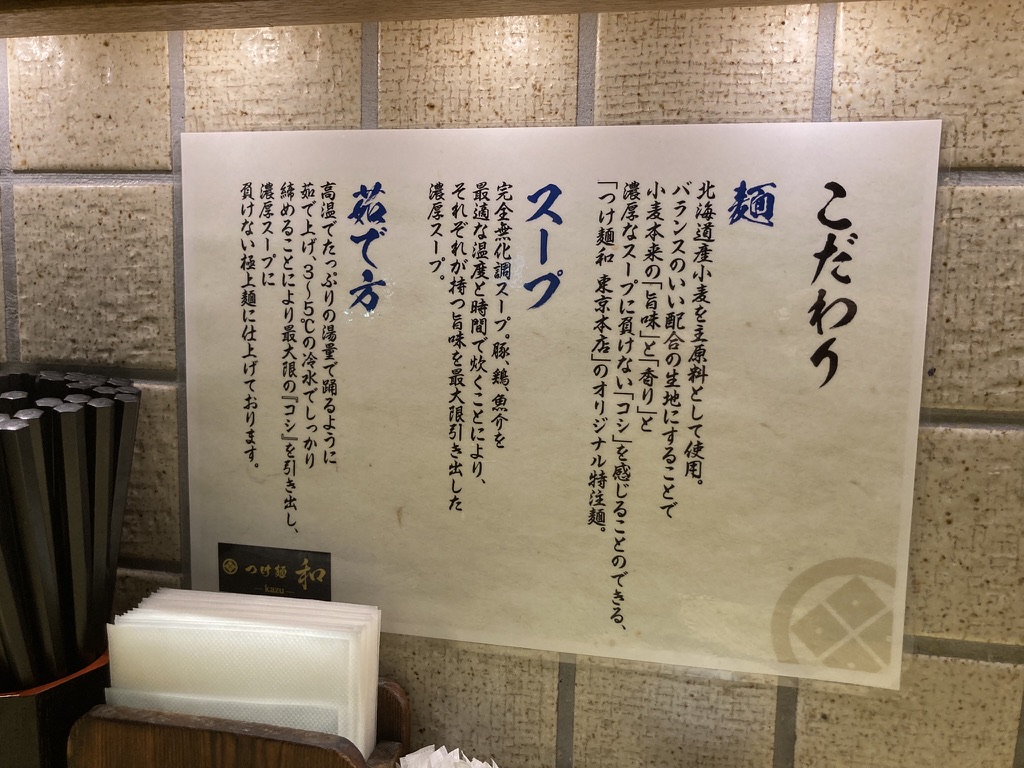 こだわり
麺
北海道産小麦を主原料として使用。
バランスのいい配合の生地にすることで
小麦本来の「旨味」と「香り」と
濃厚なスープに負けない「コシ」を感じることのできる、
「つけ麺和 東京本店」のオリジナル特注麺。
スープ
完全無化調スープ。豚、鶏、魚介を
最適な温度と時間で炊くことにより、
それぞれが持つ旨味を最大限引き出した
濃厚スープ。
茹で方
高温でたっぷりの湯量で踊るように
茹で上げ、3〜5℃の冷水でしっかり
締めることにより最大限の『コシ』を引き出し、
濃厚スープに
負けない極上麺に仕上げております。
つけ麺 和
—kazu—